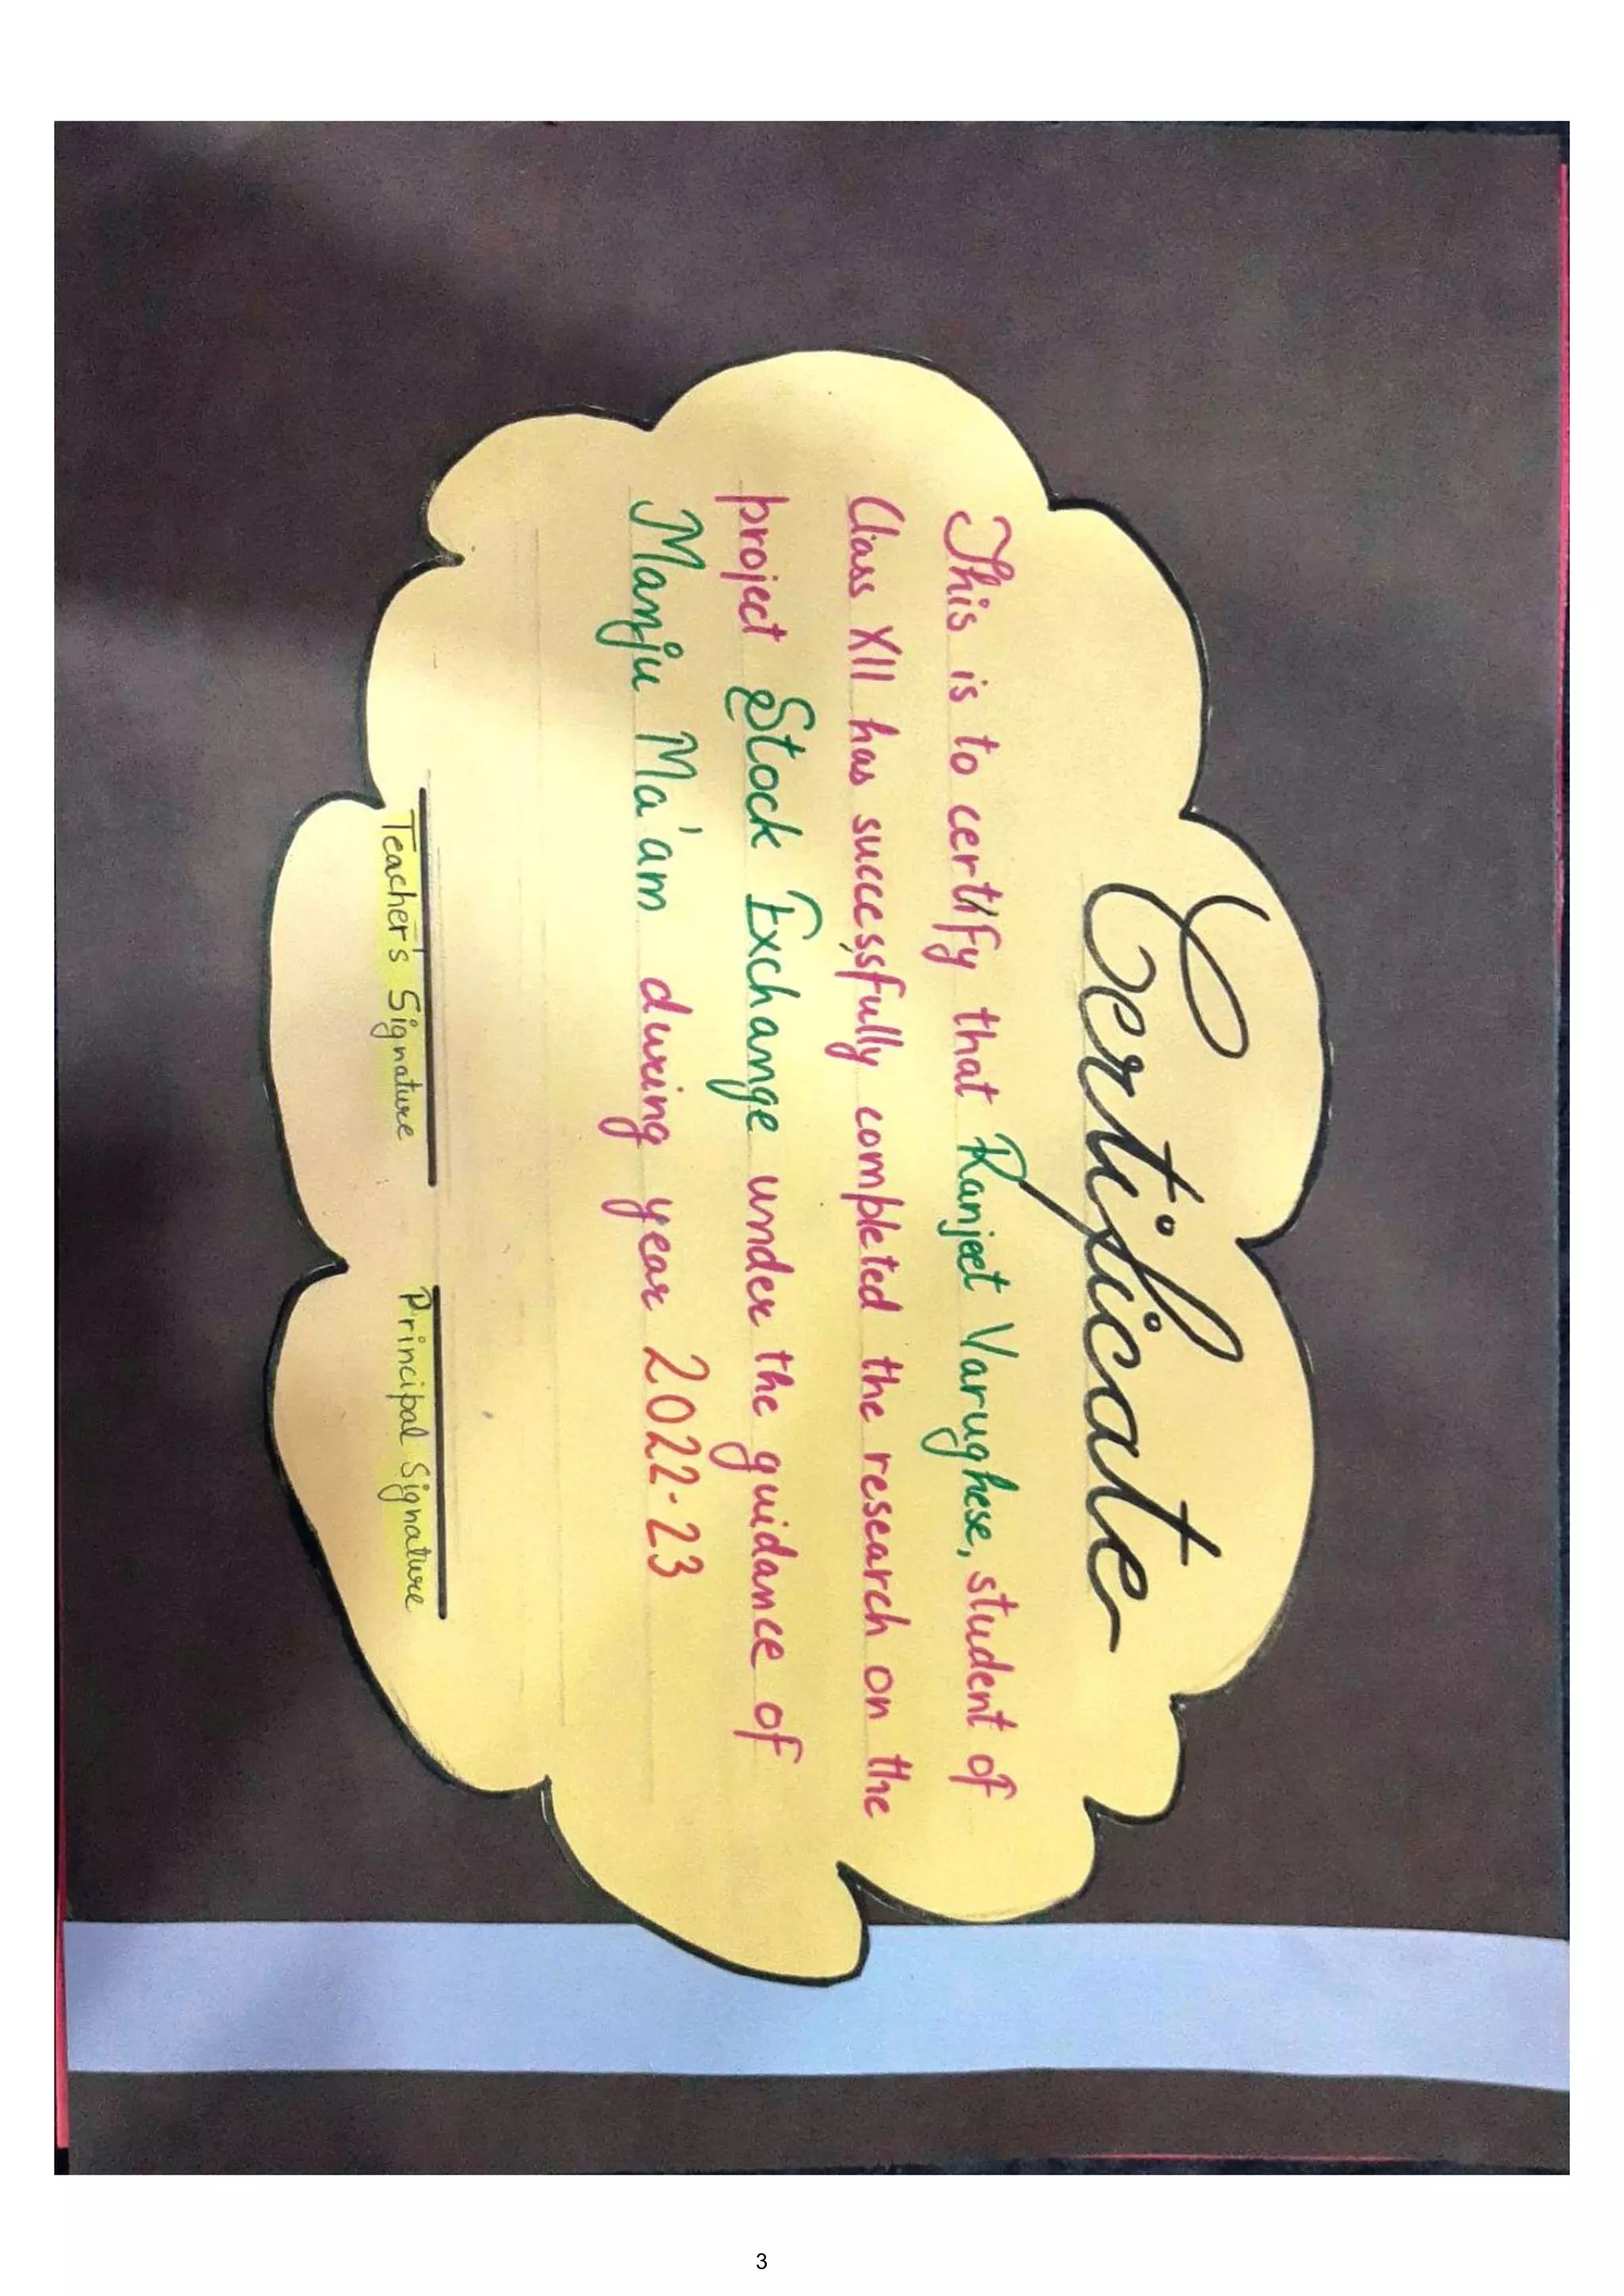 Certificate
This is to certify that Ranjeet Varughese, student of
Class XII has successfully completed the research on the
project Stock Exchange under the guidance of
Manju Ma'am during year 2022-23
Teacher's Signature
Principal Signature
3